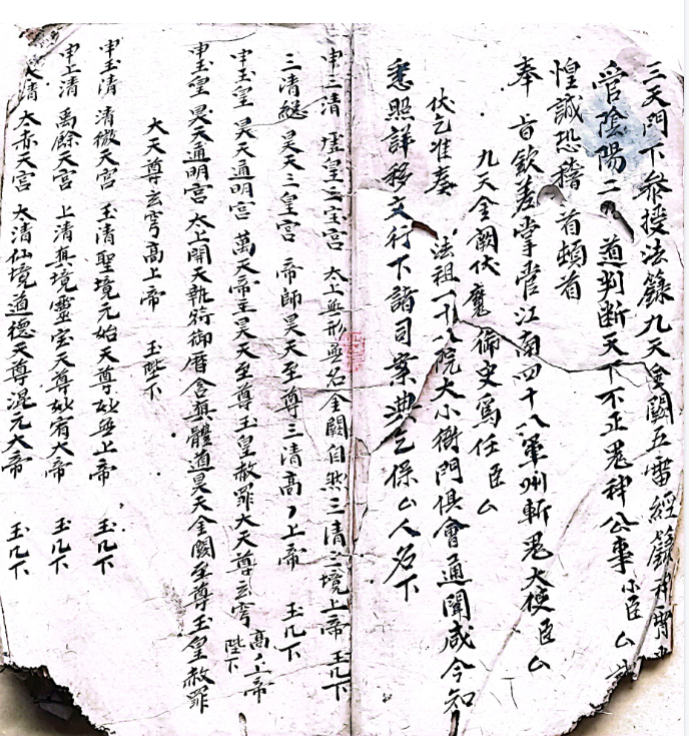 三天門下參授法籙九天金闕五雷經籙
管陰陽二道判断天下不正鬼神公事小臣厶
惶誠恐稽首頓首
奉旨欽差掌管江南四十八軍州斬鬼大使臣厶
九天金闕伏魔御史爲任臣厶
伏乞准奏法祖一十八院大小衙門俱會通聞咸令知
悉照詳移文行下諸司案典乞保厶人名下
申三清虛皇三宝宮太上無形無名金闕自然三清三境上帝玉几下
三清継昊天三皇宮帝師昊天至尊三清高々上帝玉几下
申玉皇昊天通明宮萬天帝主昊天至尊玉皇赦罪大天尊玄穹高上帝陛下
申玉皇昊天通明宮太上開天執符御曆含真體道昊天金闕至尊玉皇赦罪
大天尊玄穹高上帝玉陛下
申玉清清微天宮玉清聖境元始天尊妙無上帝玉几下
申上清禹餘天宮上清真境靈宝天尊妙宥大帝玉几下
太清太赤天宮太清仙境道德天尊混元大帝玉几下